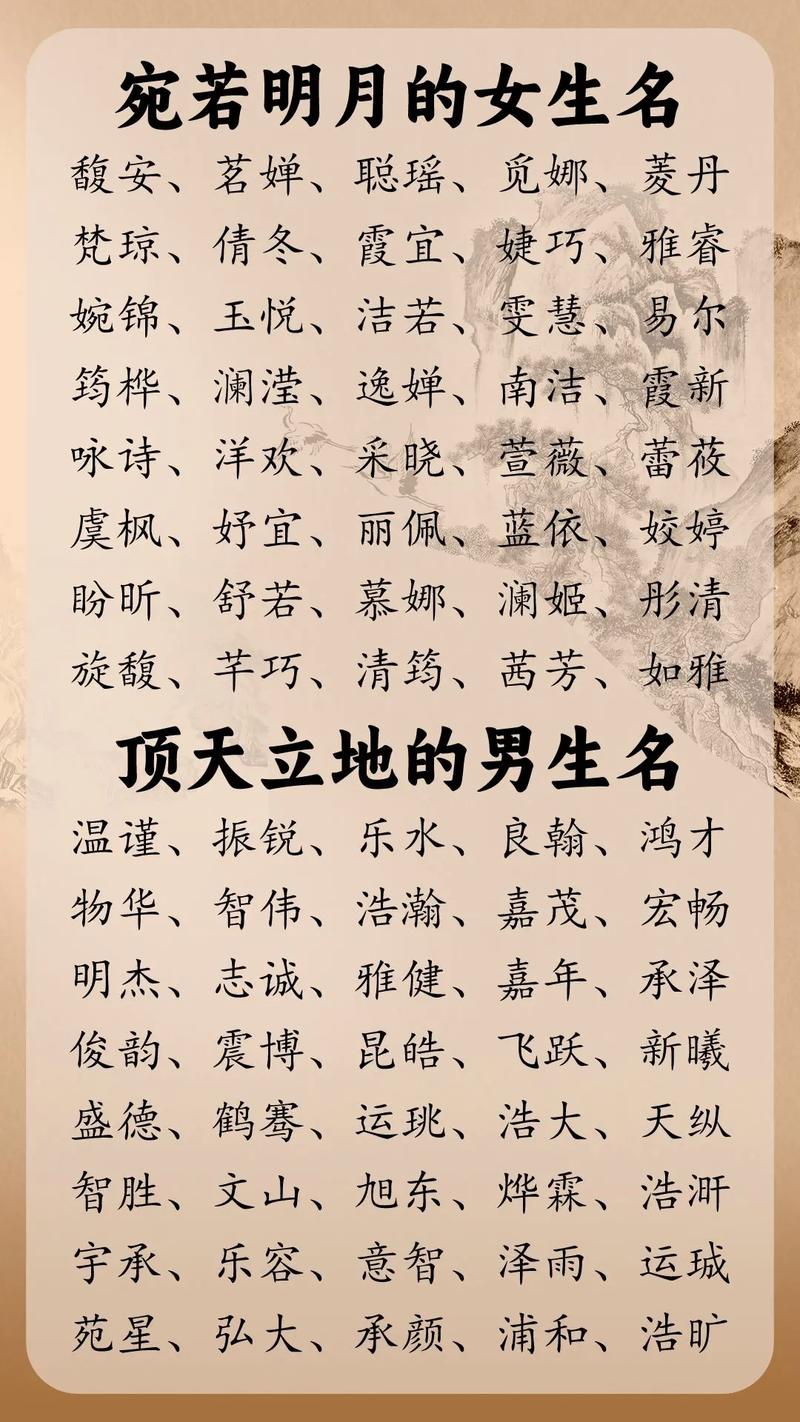 宛若明月的女生名
馥安、茗婵、聪瑶、觅娜、菱丹
梵琼、倩冬、霞宜、婕巧、雅睿
婉锦、玉悦、洁若、雯慧、易尔
筠桦、澜滢、逸婵、南洁、霞新
咏诗、洋欢、采晓、萱薇、蕾莜
虞枫、妤宜、丽佩、蓝依、姣婷
盼昕、舒若、慕娜、澜姬、彤清
旋馥、芊巧、清筠、茜芳、如雅
顶天立地的男生名
温谨、振锐、乐水、良翰、鸿才
物华、智伟、浩瀚、嘉茂、宏畅
明杰、志诚、雅健、嘉年、承泽
俊韵、震博、昆皓、飞跃、新曦
盛德、鹤骞、运珧、浩大、天纵
智胜、文山、旭东、烨霖、浩漭
宇承、乐容、意智、泽雨、运珹
苑星、弘大、承颜、浦和、浩旷